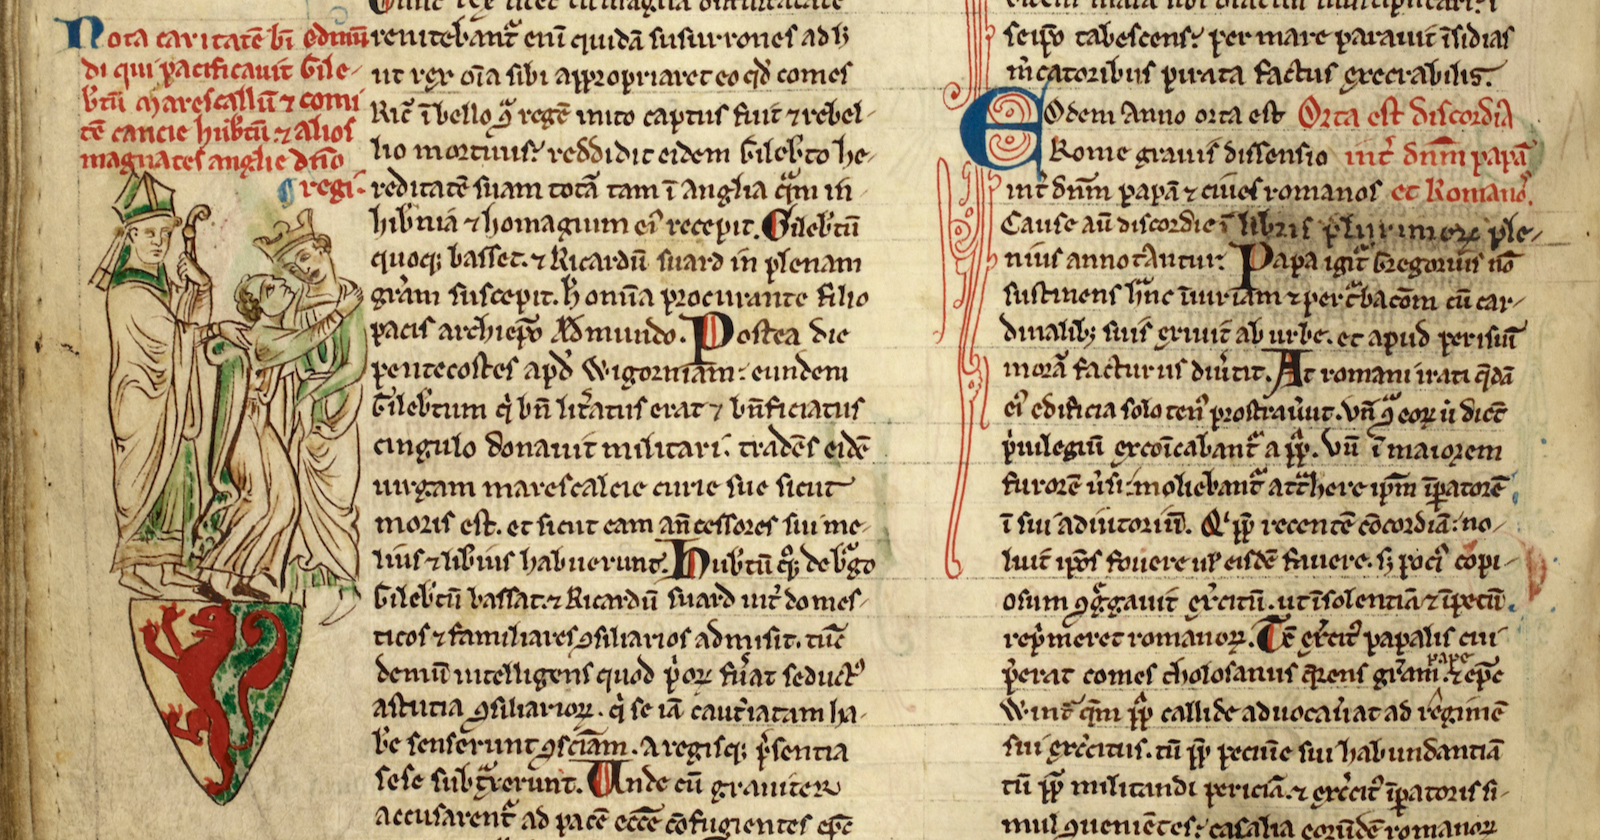 Nota caritatē bī edmū
di qui pacificauit Gile-
b'tū marescallū ⁊ comi
tē cancie hub'tū ⁊ alios
magnates anglie dn̄o
regi.
renitebant᷑ eni quidā susurrones ad h
ut rex oīa sibi appropriaret eo qd comes
Ric̄ ī bello qͣ regē inito captus fuit ⁊ rebel-
lio mortuus: reddidit eidem Gileb'to he-
reditatē suam totā tam ī anglia qͣm in
hib'nia ⁊ homagium ei' recepit. Gileb'tū
quoq; basset. ⁊ Ricardū suard in plenam
gr̄am suscepit. h omnia procurante filio
pacis archiep̄o Ædmundo. Postea die
pentecostes apd' Wigorniam: eundem
Gileb'tum q' bn̄ litt'atus erat ⁊ bn̄ficiatus
cingulo donauit militari. tradens eidē
uirgam marescalcie curie sue sicut
moris est. et sicut eam an̄cessores sui me-
lius ⁊ lib'ius habuerunt. Hub'tū q; de b'go
Gileb'tū basset. ⁊ Ricardū suard int' domes-
ticos ⁊ familiares ꝯsiliarios admisit. tūc
demū intelligens quod p'oꝝ fu'at seduct'
astutia ꝯsiliarioꝝ. q' se iā caut'iatam ha-
b'e senserunt ꝯsciam. a regisq; p'sentia
sese subtͣxerunt. Unde cū grauiter
accusarent᷑ ad pacē ecc̄e ꝯfugientes ep̄c
seip̄o tabescens: per mare parauit īsidias
m'catoribus pirata factus execrabilis.
Eodem anno orta est Orta est discordia
Rome grauis dissensio int' dn̄m papā
int' dn̄m papā ⁊ ciues romanos et Romano'.
Cause au' discordie ī libris plurimoꝝ ple-
nius annotantur. Papa igit' Gregorius nō
sustinens hͣnc iniuriam ⁊ pert'bacōm cū car-
dinalib; suis exiuit ab urbe. et apud perisiū
morā facturus diu'tit. At romani irati q̄dā
ei' edificia solo ten' prostrau'ut. Vn̄ qͣ eoꝝ
p'uilegiū excōicabant᷑ a p̄p̄. Vn̄ ī maiorem
furorē u'si: moliebant᷑ att'here ip̄m īpatorē
ī sui adiutoriū. Q' p̄p̄ recentē cōcordiā: no-
luit ip̄os fouere ul' eisdē fauere. s; poci' copi-
osum ꝯgͣgauit ex'citū. ut īsolentiā ⁊ īpetū
rep'meret romanoꝝ. Tē ex'cit' papalis cui
p̄erat comes tholosanus q̄rens gr̄am pape. ⁊ ep̄c
Wint' qm̄ p̄p̄ callide aduocau'at ad regimē
sui ex'citus. tū p̄p̄ pecunie sui habundantiā
tū p̄p̄ militandi periciā. ⁊ ex'cit' īpatoris si-
mul ꝯuenientes: casalia eorūdē romanoꝝ